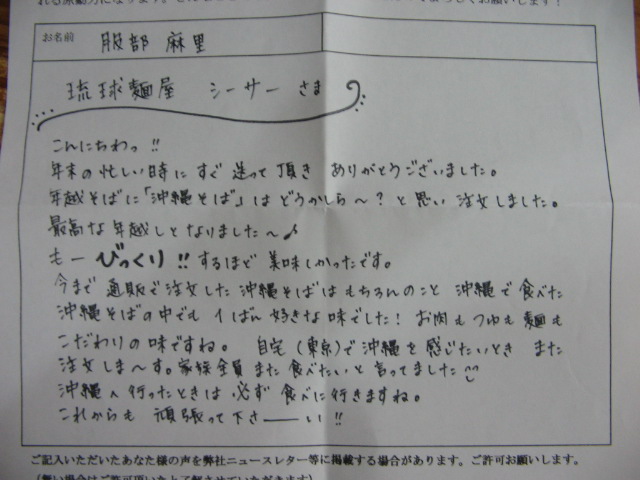 お名前 服部 麻里
琉球麺屋 シーサー さま
こんにちわっ!!
年末の忙しい時にすぐ送って頂き ありがとうございました。
年越そばに「沖縄そば」はどうかしら〜?と思い注文しました。
最高な年越しとなりました〜♪
もーびっくり!!するほど美味しかったです。
今まで通販で注文した沖縄そばはもちろんのこと 沖縄で食べた
沖縄そばの中でも1ばん好きな味でした!お肉もつゆも麺も
こだわりの味ですね。 自宅(東京)で沖縄を感じたいとき また
注文しま〜す。家族全員また食べたいと言ってました
沖縄へ行ったときは必ず食べに行きますね。
これからも 頑張って下さーーい!!
ご記入いただいたあなた様の声を弊社ニュースレター等に掲載する場合があります。ご許可お願いします。